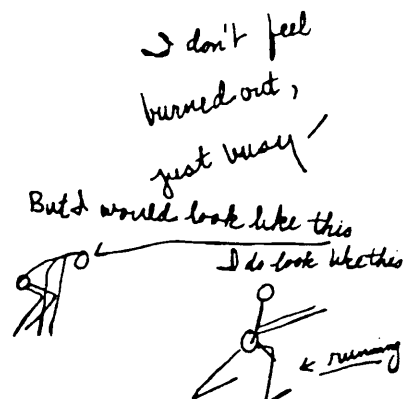 I don't feel
burned out,
just busy
But I would look like this
I do look like this
running